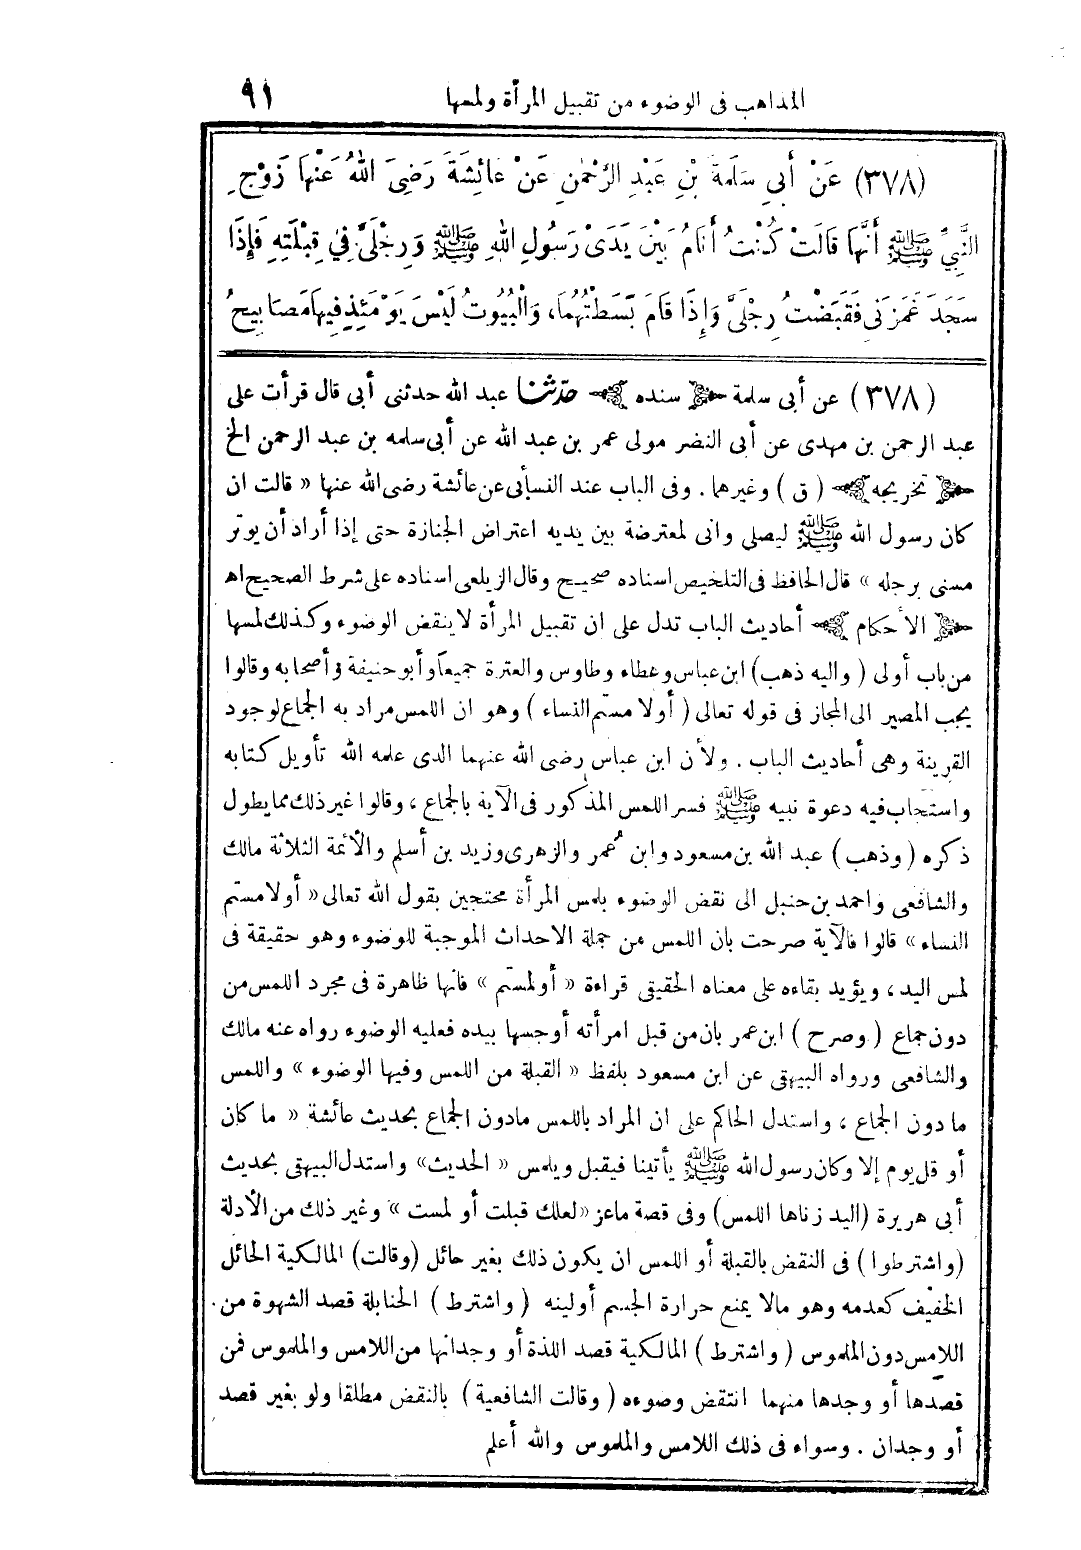 المذاهب فى الوضوء من تقبيل المرأة ولمسها ٩١
(٣٧٨) عَنْ أَبِي سَلَمَةَ بْنِ عَبْدِ الرَّحْمٰنِ عَنْ عَائِشَةَ رَضِيَ اللهُ عَنْهَا زَوْجِ
النَّبِيِّ ﷺ أَنَّهَا قَالَتْ كُنْتُ أَنَامُ بَيْنَ يَدَىْ رَسُولِ اللهِ ﷺ وَرِجْلَىَّ فِي قِبْلَتِهِ فَإِذَا
سَجَدَ غَمَزَنِي فَقَبَضْتُ رِجْلَىَّ وَإِذَا قَامَ بَسَطْتُهُمَا، وَالْبُيُوتُ لَيْسَ يَوْمَئِذٍ فِيهَا مَصَابِيحُ
(٣٧٨) عن أبى سلمة ﴿ سنده ﴾ حدّثنا عبد الله حدثنى أبى قال قرأت على
عبد الرحمن بن مهدى عن أبى النضر مولى عمر بن عبد الله عن أبى سلمه بن عبد الرحمن الخ
﴿ تخريجه ﴾ ( ق ) وغيرهما . وفى الباب عند النسأبى عن عائشة رضى الله عنها « قالت ان
كان رسول الله ﷺ ليصلى وانى لمعترضة بين يديه اعتراض الجنازة حتى إذا أراد أن يوتر
مسنى برجله » قال الحافظ فى التلخيص اسناده صحيح وقال الزيلعى اسناده على شرط الصحيح اهـ
﴿ الأحكام ﴾ أحاديث الباب تدل على ان تقبيل المرأة لا ينقض الوضوء وكذلك لمسها
من باب أولى ( واليه ذهب ) ابن عباس وعطاء وطاوس والعترة جميعاً وأبو حنيفة وأصحابه وقالوا
يجب المصير الى المجاز فى قوله تعالى ( أولا مستم النساء ) وهو ان اللمس مراد به الجماع لوجود
القرينة وهى أحاديث الباب . ولأن ابن عباس رضى الله عنهما الذى علمه الله تأويل كتابه
واستجاب فيه دعوة نبيه ﷺ فسر اللمس المذكور فى الآية بالجماع ، وقالوا غير ذلك مما يطول
ذكره ( وذهب ) عبد الله بن مسعود وابن عُمر والزهرى وزيد بن أسلم والأئمة الثلاثة مالك
والشافعى واحمد بن حنبل الى نقض الوضوء بلمس المرأة محتجين بقول الله تعالى « أولا مستم
النساء » قالوا فالآية صرحت بان اللمس من جملة الاحداث الموجبة للوضوء وهو حقيقة فى
لمس اليد ، ويؤيد بقاءه على معناه الحقيقى قراءة « أو لمستم » فانها ظاهرة فى مجرد اللمس من
دون جماع ( وصرح ) ابن عمر بان من قبل امرأته أو جسها بيده فعليه الوضوء رواه عنه مالك
والشافعى ورواه البيهقى عن ابن مسعود بلفظ « القبلة من اللمس وفيها الوضوء » واللمس
ما دون الجماع ، واستدل الحاكم على ان المراد باللمس مادون الجماع بحديث عائشة « ما كان
أو قل يوم إلا وكان رسول الله ﷺ يأتينا فيقبل ويلمس « الحديث» واستدل البيهقى بحديث
أبى هريرة (اليد زناها اللمس) وفى قصة ماعز « لعلك قبلت أو لمست » وغير ذلك من الأدلة
(واشترطوا ) فى النقض بالقبلة أو اللمس ان يكون ذلك بغير حائل (وقالت) المالكية الحائل
الخفيف كعدمه وهو مالا يمنع حرارة الجسم أو لينه ( واشترط ) الحنابلة قصد الشهوة من
اللامس دون الملموس ( واشترط ) المالكية قصد اللذة أو وجدانها من اللامس والملموس فمن
قصدها أو وجدها منهما انتقض وضوءه ( وقالت الشافعية ) بالنقض مطلقا ولو بغير قصد
أو وجدان . وسواء فى ذلك اللامس والملموس والله أعلم